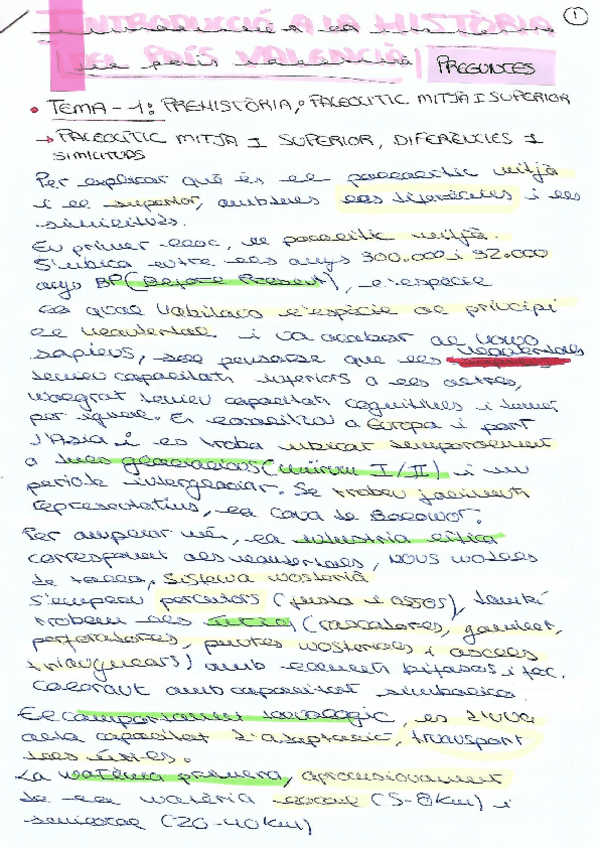 INTRODUCCIÓ A LA HISTÒRIA
DEL PAÍS VALENCIÀ
1
PREGUNTES
• TEMA-1: PREHISTÒRIA, PALEOLITIC MITJÀ I SUPERIOR
→ PALEOLÍTIC MITJÀ I SUPERIOR, DIFERÈNCIES I
SIMILITUDS
Per explicar què és el paleolitic mitjà
i el superior, ambdues les diferències i les
similituds.
En primer lloc, el paleolitic mitjà.
S'ubica entre els anys 300.000 i 32.000
anys BP (Before Present), l'espècie
la qual habitava l'espècie al principi
el neandertal i va acabar de homo
sapiens, pensarse que els neandertales
tenien capacitats inferiors a els altres,
malgrat tenien capacitats cognitives i
per igual. Es localitza a Europa i part
d'Asia i es troba ubicat temporalment
a dues glaciacions (Würm I/II) i un
periode interglaciar. Se troben jaciments
representatius, la Cova de Bolomor.
Per ampliar més, la industria lítica
corresponent als neandertals, nous models
de talla, sistema mosterià
S'empren percutors ( i assos), també
trobem els útils (rascadores,
perforadores, puntes mosterianes i ascles
triangulars) amb elements bifasos i foc.
Calorant amb capacitat simbolica.
El comportament sociologic, es d'una
alta capacitat d'adaptació, transport
dels útils.
La matèria primera, aprovisionament
de la matèria local (5-8km) i
semilocal (20-40km)